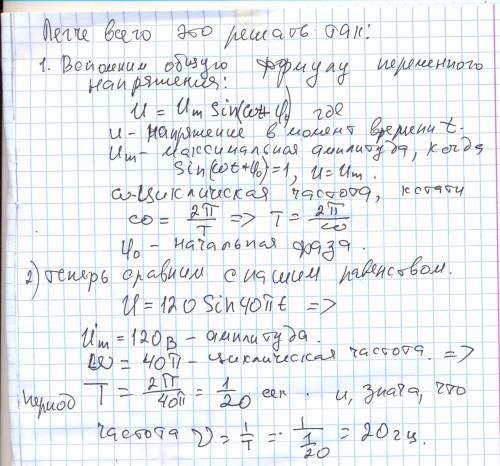 Легче всего это решать так:
1. Вспомним общую формулу переменного
напряжения:
U = Um Sin(ωt + φ0) где
u - напряжение в момент времени t.
Um - максимальная амплитуда, когда
Sin(ωt+φ0)=1, u = Um.
ω - циклическая частота, кстати
ω = 2π/T => T = 2π/ω
φ0 - начальная фаза.
2) теперь сравним с нашим равенством.
U = 120 Sin 40πt =>
Um = 120 В - амплитуда.
ω = 40π - циклическая частота. =>
период T = 2π/40π = 1/20 сек. и, зная, что
частота ν = 1/T = 1/(1/20) = 20 гц.